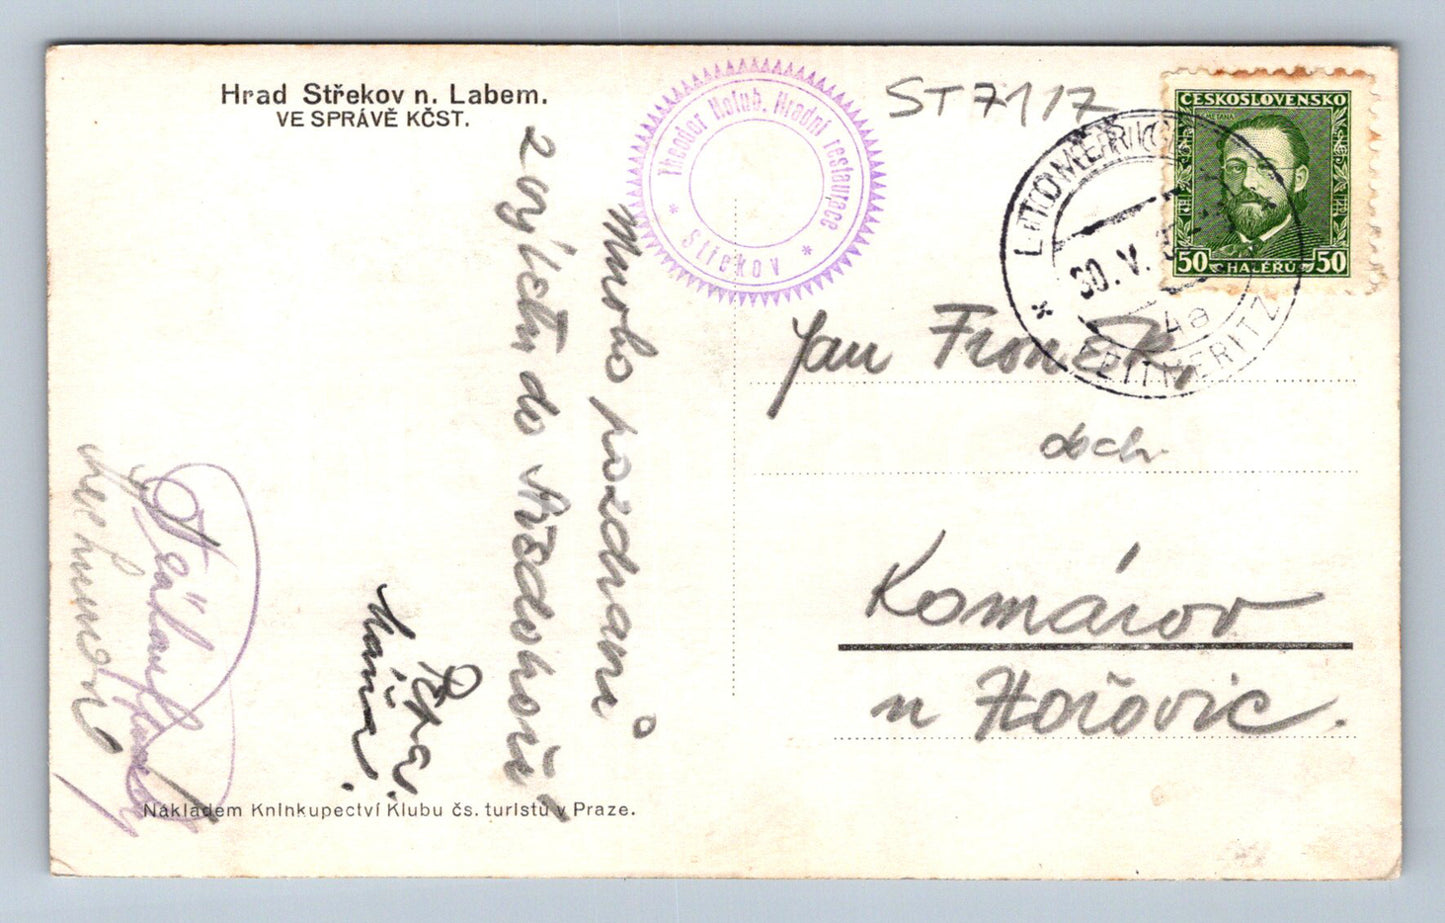 Hrad Střekov n. Labem.
VE SPRÁVĚ KČST.
Theodor Holub, Hradní restaurace
* Střekov *
ST 71/7
ČESKOSLOVENSKO
SMETANA
50 HALÉŘŮ 50
LITOMĚŘICE
30. V. 3
4a
* LEITMERITZ
Mnoho pozdravů
z výletu do Středohoří
Máňa
Jan Fronek,
dach.
Komárov
u Hořovic.
Nákladem Knihkupectví Klubu čs. turistů v Praze.